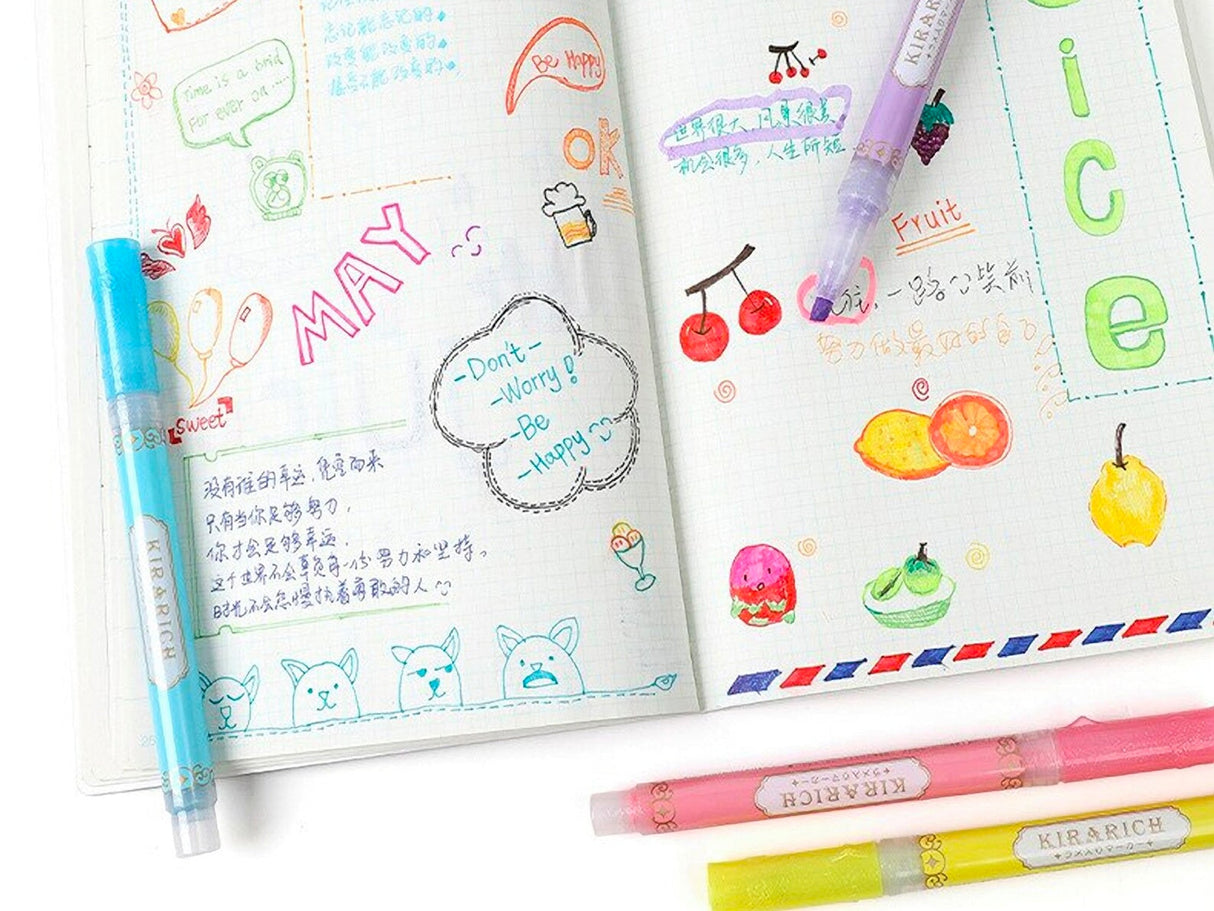 忘记能忘记的。
改变能改变的。
接受不能改变的。
Time is a brid
For ever on ....
Be Happy
OK
MAY
sweet
-Don't-
-Worry!
-Be
-Happy
没有谁的幸运,凭空而来
只有当你足够努力,
你才会足够幸运。
这个世界不会辜负每一份努力和坚持。
时光不会怠慢执着勇敢的人
世界很大,风景很美
机会很多,人生所短
Fruit
一路心笑前
努力做最好的自己
ice
KIRARICH
KIRARICH
KIRARICH
ラメ入りマーカー
KIRARICH
ラメ入りマーカー